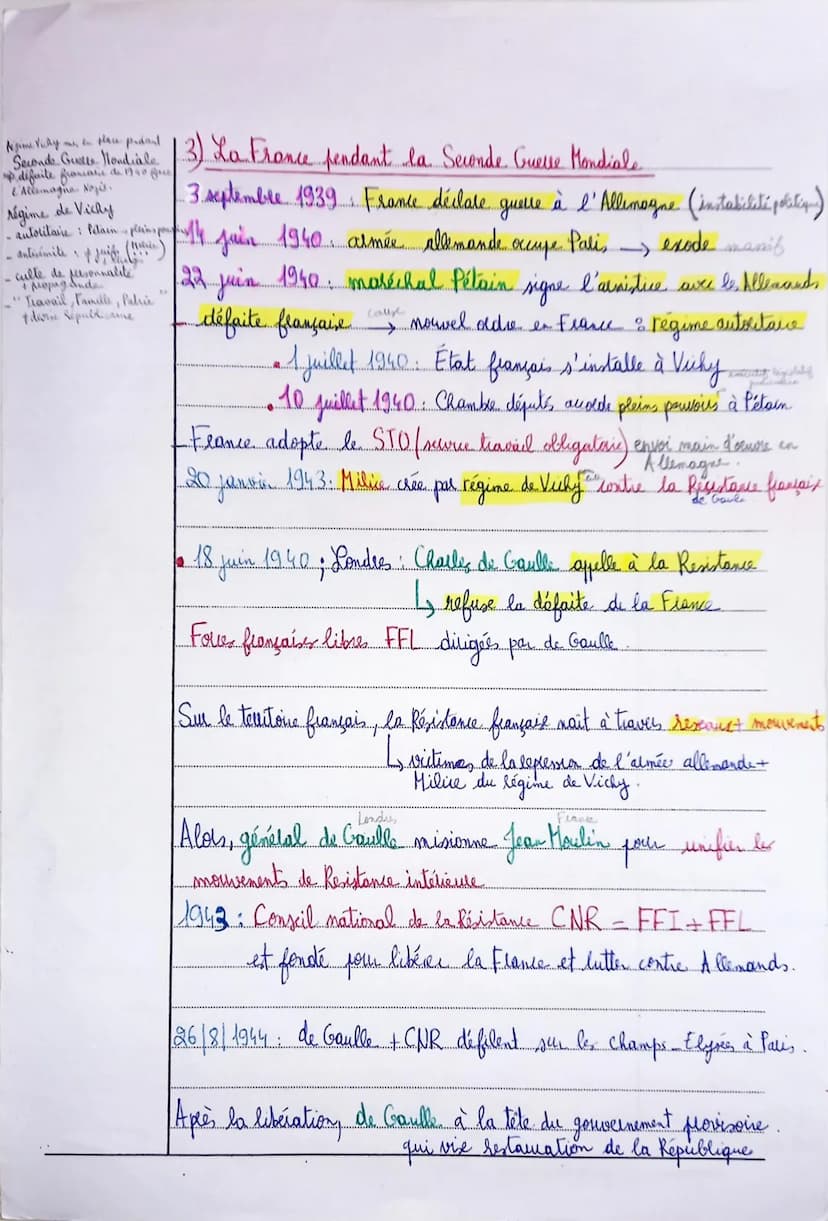 Régime Vichy mis en place pendant
Seconde Guerre Mondiale
défaite française de 1940 face
l'Allemagne Nazie.
régime de Vichy
- autoritaire : Pétain → pleins pouvoirs
- antisémite : juif (Milice)
- culte de personnalité
+ propagande
- "Travail, Famille, Patrie"
≠ devise République
3) La France pendant la Seconde Guerre Mondiale
3 septembre 1939 : France déclare guerre à l'Allemagne (instabilité politique)
14 juin 1940 : armée allemande occupe Paris → exode massif
22 juin 1940 : maréchal Pétain signe l'armistice avec les Allemands
- défaite française cause → nouvel ordre en France : régime autoritaire
• 1 juillet 1940 : État français s'installe à Vichy
• 10 juillet 1940 : Chambre députés accorde pleins pouvoirs à Pétain
- France adopte le STO (service travail obligatoire) envoi main d'oeuvre en
Allemagne.
20 janvier 1943 : Milice crée par régime de Vichy contre la Résistance française
de Gaulle
• 18 juin 1940 ; Londres : Charles de Gaulle appelle à la Resistance
↳ refuse la défaite de la France
Forces françaises libres FFL dirigées par de Gaulle
Sur le territoire français, la Résistance française nait à travers reseaux + mouvements
↳ victimes de la repression de l'armée allemande +
Milice du régime de Vichy.
Londres France
Alors, général de Gaulle misionne Jean Moulin pour unifier les
mouvements de Resistance intérieure
1943 : Conseil national de la Résistance CNR = FFI + FFL
est fondé pour libérer la France et lutter contre Allemands.
26/8/1944 : de Gaulle + CNR défilent sur les champs-Elysées à Paris.
Après la libération, de Gaulle à la tête du gouvernement provisoire.
qui vise restauration de la République